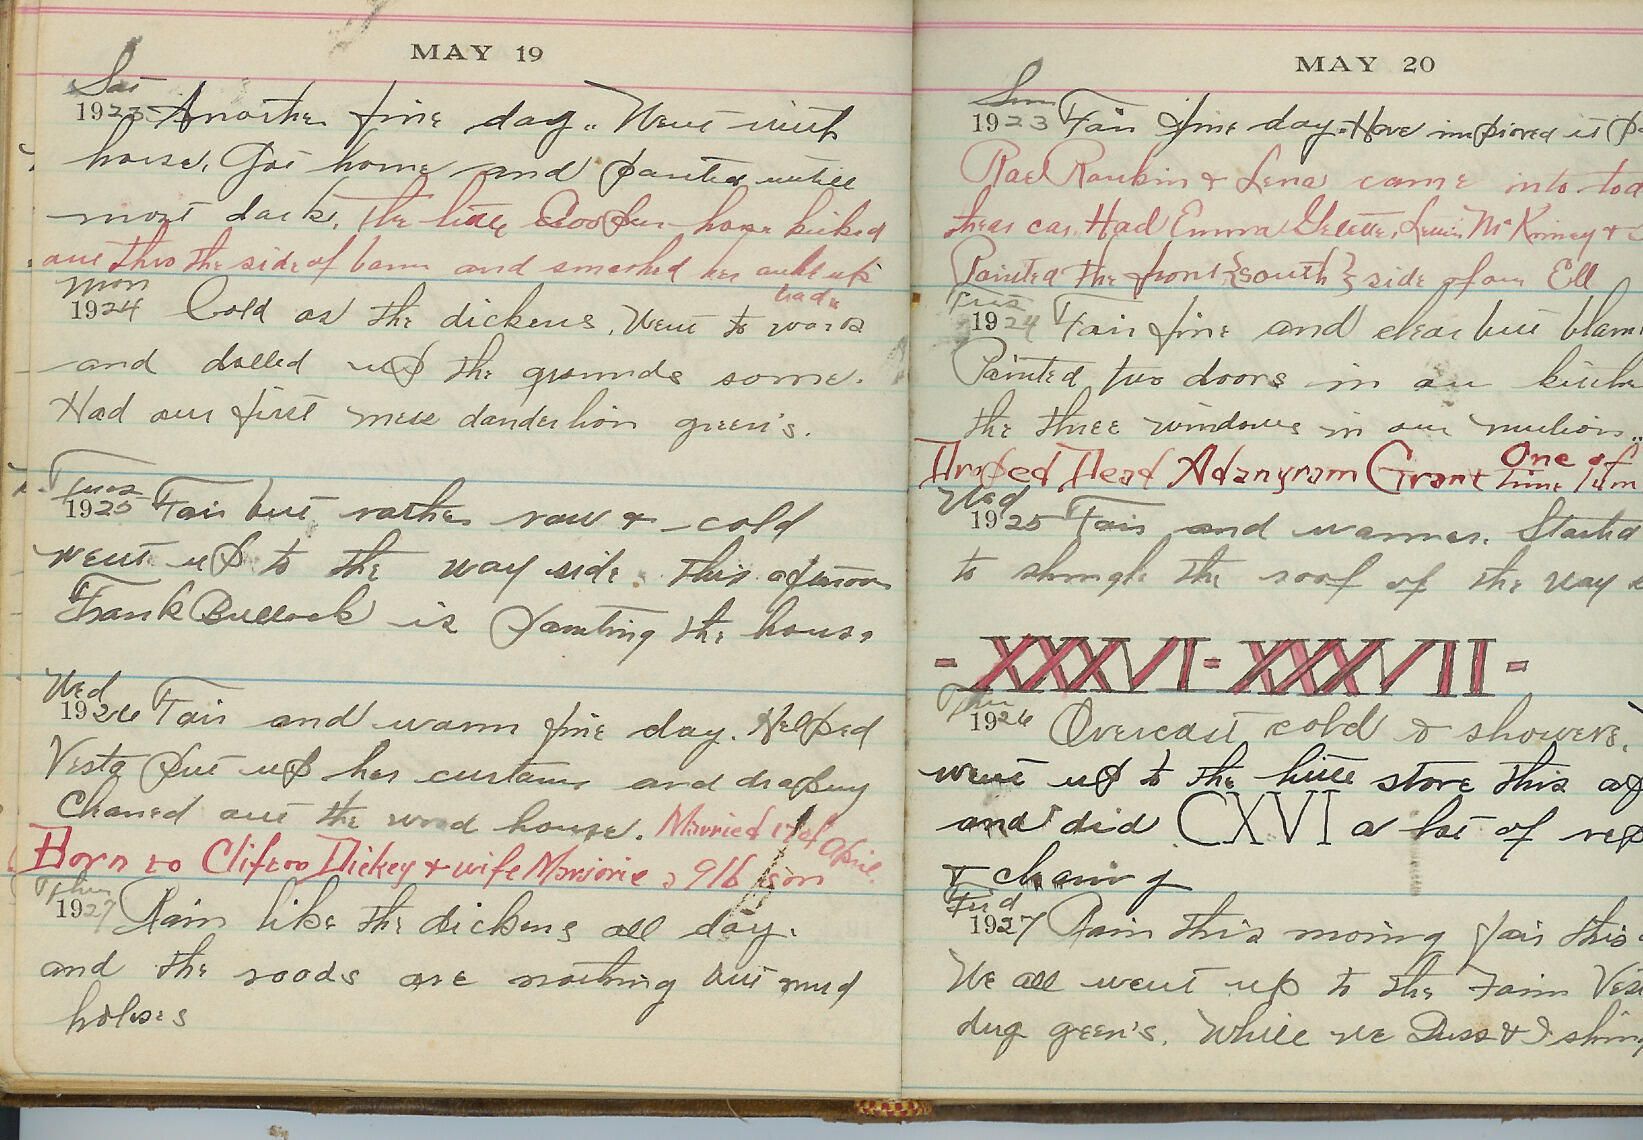 MAY 19
Sat
1923 Another fine day.. Went with
horse. Got home and painted untill
most dark. The little Cooper horse kicked
out thro the side of barn and smashed her up
bade
Mon
1924 Cold as the dickens. Went to work
and dolled up the grounds some.
Had our first mess danderlion green's.
Tues
1925 Fair but rather raw & cold
went up to the way side. this afternoon
Frank Bullock is painting the house
Wed
1926 Fair and warm fine day. Helped
Vesta put up her curtains and drapery
Chaned out the wood house. Married 17 of April.
Born to Clifton Dickey & wife Marjorie a 9 lb son
Thur
1927 Rain like the dickens all day.
and the roods are nothing but mud
holeses
MAY 20
Sun
1923 Fair fine day. Have improved it
Rael Rankin & Lena came into tod
thear car. Had Emma Lewis McKinney &
Painted the front {south} side of our Ell
Tues
1924 Fair fine and clear but
Painted two doors in our kitche
the three windows in our
Droped Dead Adanyram Grant One of
time
Wed
1925 Fair and warmer. Started
to shingle the roof of the way
- XXXVI - XXXVII -
Thur
1926 Overcast cold & showers.
went up to the little store this
and did CXVI a lot of rep
&
Frid
1927 Rain this morning fair this
We all went up to the Farm
dug green's. While we & I shing